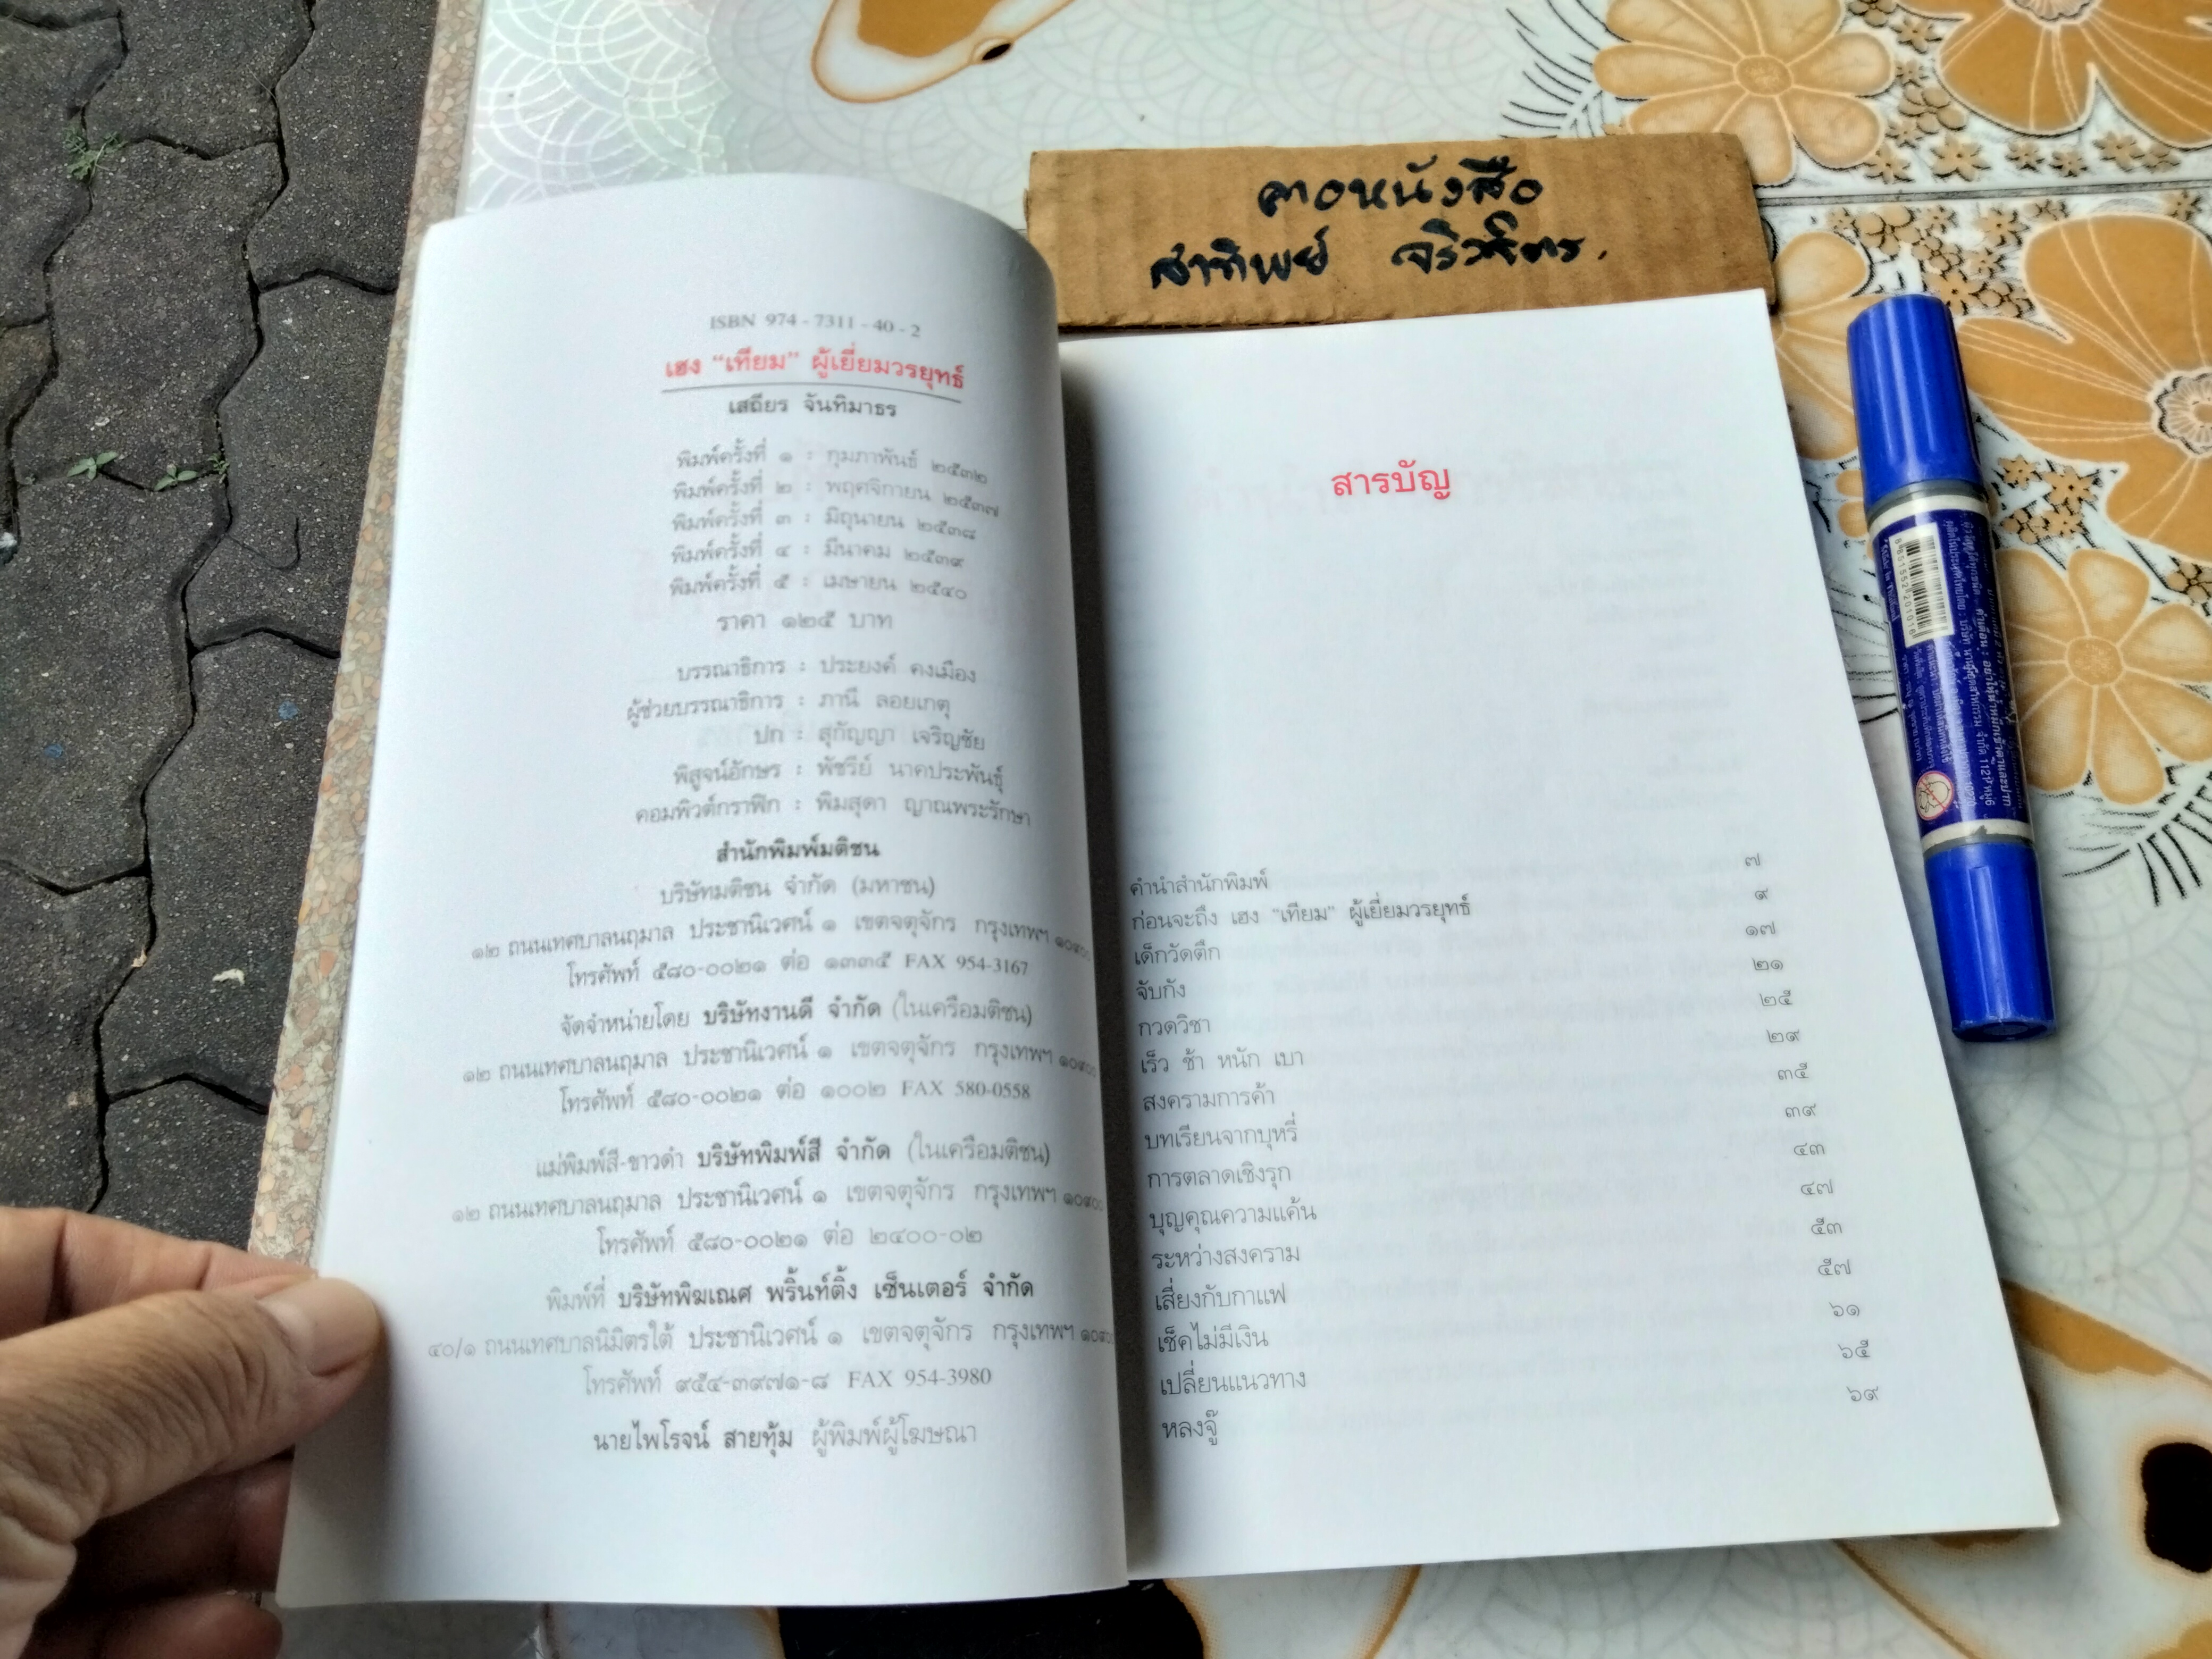 คอหนังสือ
สาทิพย์
ISBN 974-7311-40-2
เฮง “เทียม” ผู้เยี่ยมวรยุทธ์
เสถียร จันทิมาธร
พิมพ์ครั้งที่ ๑ : กุมภาพันธ์ ๒๕๓๒
พิมพ์ครั้งที่ ๒ : พฤศจิกายน ๒๕๓๗
พิมพ์ครั้งที่ ๓ : มิถุนายน ๒๕๓๘
พิมพ์ครั้งที่ ๔ : มีนาคม ๒๕๓๙
พิมพ์ครั้งที่ ๕ : เมษายน ๒๕๔๐
ราคา ๑๒๕ บาท
บรรณาธิการ : ประยงค์ คงเมือง
ผู้ช่วยบรรณาธิการ : ภานี ลอยเกตุ
ปก : สุกัญญา เจริญชัย
พิสูจน์อักษร : พัชรีย์ นาคประพันธุ์
คอมพิวต์กราฟิก : พิมสุดา ญาณพระรักษา
สำนักพิมพ์มติชน
บริษัทมติชน จำกัด (มหาชน)
๑๒ ถนนเทศบาลนฤมาล ประชานิเวศน์ ๑ เขตจตุจักร กรุงเทพฯ ๑๐๙๐๐
โทรศัพท์ ๕๘๐-๐๐๒๑ ต่อ ๑๓๓๕ FAX 954-3167
จัดจำหน่ายโดย บริษัทงานดี จำกัด (ในเครือมติชน)
๑๒ ถนนเทศบาลนฤมาล ประชานิเวศน์ ๑ เขตจตุจักร กรุงเทพฯ ๑๐๙๐๐
โทรศัพท์ ๕๘๐-๐๐๒๑ ต่อ ๑๐๐๒ FAX 580-0558
แม่พิมพ์สี-ขาวดำ บริษัทพิมพ์สี จำกัด (ในเครือมติชน)
๑๒ ถนนเทศบาลนฤมาล ประชานิเวศน์ ๑ เขตจตุจักร กรุงเทพฯ ๑๐๙๐๐
โทรศัพท์ ๕๘๐-๐๐๒๑ ต่อ ๒๔๐๐-๐๒
พิมพ์ที่ บริษัทพิฆเณศ พริ้นท์ติ้ง เซ็นเตอร์ จำกัด
๔๐/๑ ถนนเทศบาลนิมิตรใต้ ประชานิเวศน์ ๑ เขตจตุจักร กรุงเทพฯ ๑๐๙๐๐
โทรศัพท์ ๙๕๔-๓๙๗๑-๘ FAX 954-3980
นายไพโรจน์ สายทุ้ม ผู้พิมพ์ผู้โฆษณา
สารบัญ
คำนำสำนักพิมพ์ ๗
ก่อนจะถึง เฮง “เทียม” ผู้เยี่ยมวรยุทธ์ ๙
เด็กวัดตึก ๑๗
จับกัง ๒๑
กวดวิชา ๒๕
เร็ว ช้า หนัก เบา ๒๙
สงครามการค้า ๓๕
บทเรียนจากบุหรี่ ๓๙
การตลาดเชิงรุก ๔๓
บุญคุณความแค้น ๔๗
ระหว่างสงคราม ๕๓
เสี่ยงกับกาแฟ ๕๗
เช็คไม่มีเงิน ๖๑
เปลี่ยนแนวทาง ๖๕
หลงจู๊ ๖๙